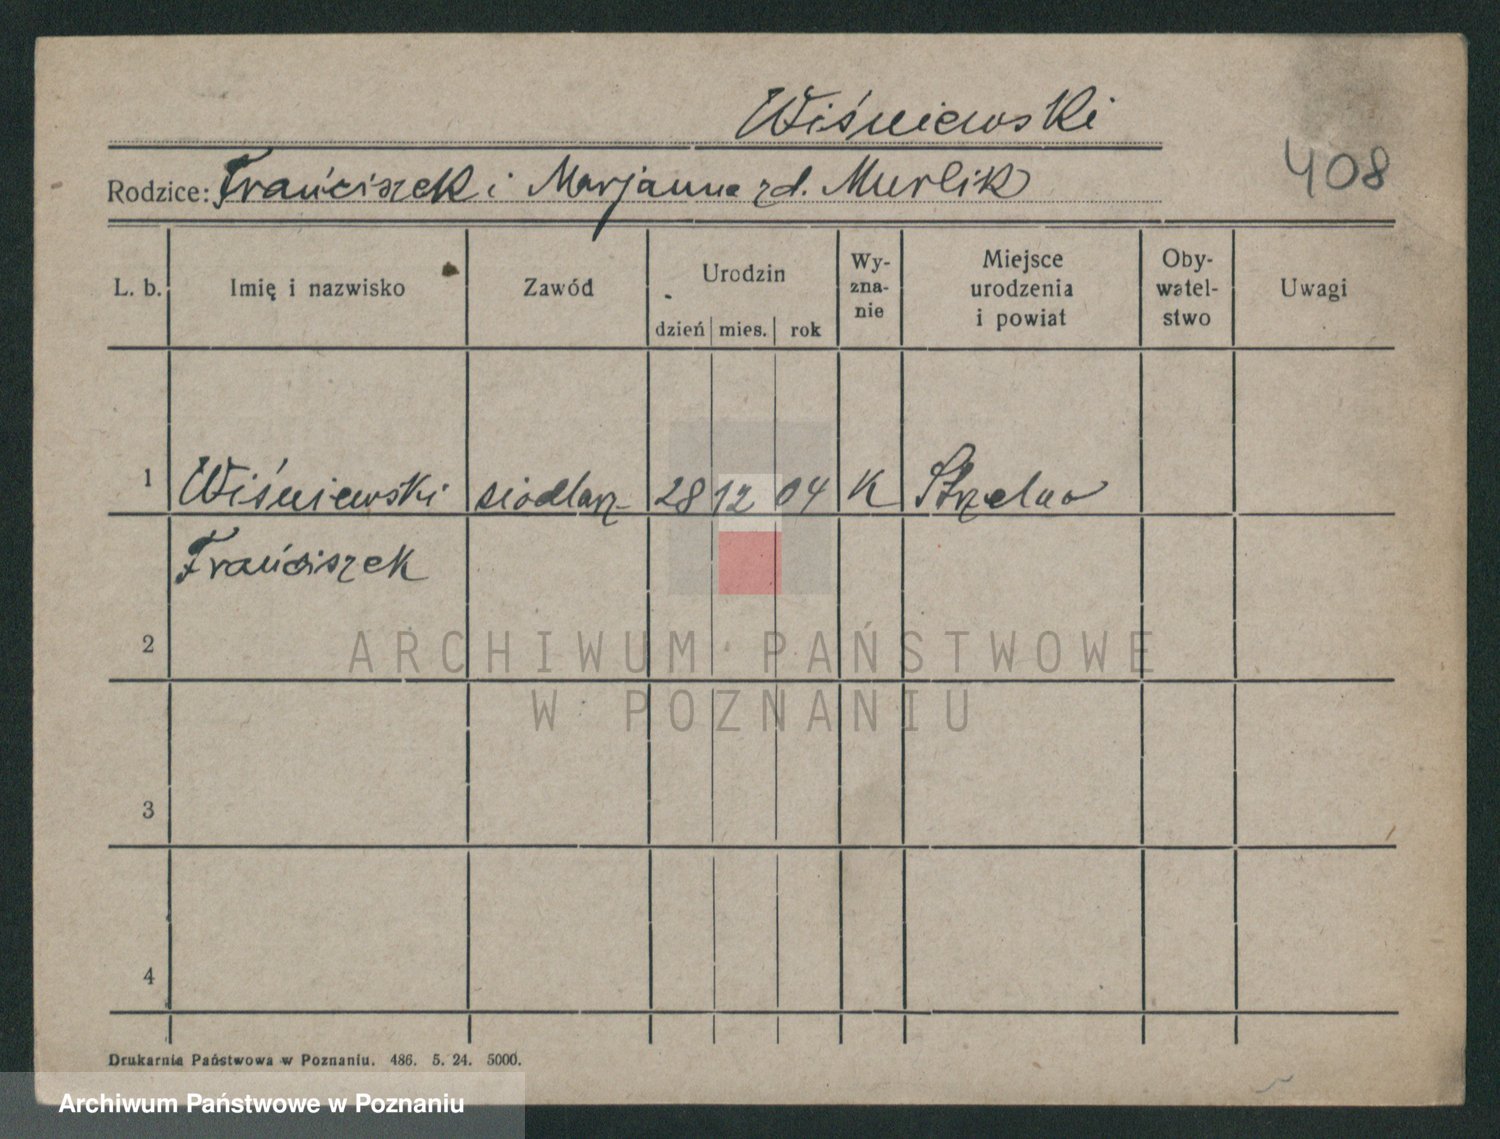 Wiśniewski
408
Rodzice: Franciszek i Marjanna zd. Murlik
L. b. Imię i nazwisko Zawód Urodzin dzień mies. rok Wy-zna-nie Miejsce urodzenia i powiat Oby-watel-stwo Uwagi
1 Wiśniewski siodlarz 28 12 04 K Strzelno
Franciszek
2
ARCHIWUM PAŃSTWOWE
W POZNANIU
3
4
Drukarnia Państwowa w Poznaniu. 486. 5. 24. 5000.
Archiwum Państwowe w Poznaniu